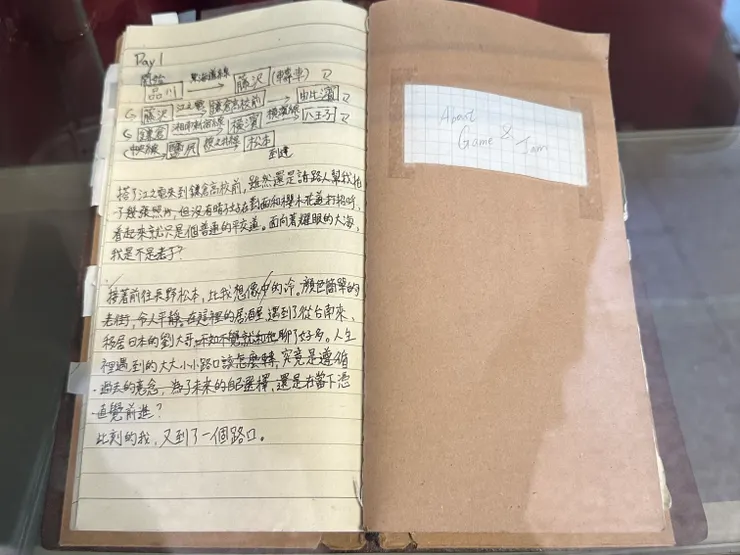 Day 1
開始 東海道線
品川 → 藤沢 (轉車)
藤沢 江之電 → 鎌倉高校前 → 由比濱
鎌倉 湘南新宿線 → 橫濱 橫濱線 → 八王子
中央線 → 鹽尻 → 松本
到達
搭了江之電來到鎌倉高校前，雖然還是請路人幫我拍
了幾張照片，但沒有晴子站在對面和櫻木花道打招呼，
看起來就只是個普通的平交道。面向著耀眼的大海，
我是不是老了？
接著前往長野松本，比我想像中的冷。顏色簡單的
老街，令人平靜。在這裡的居酒屋遇到了從台南來、
移居日本的劉大哥，不知不覺就和他聊了好多。人生
裡遇到的大大小小路口該怎麼轉，究竟是遵循
過去的意念，為了未來的自己選擇，還是在當下憑
直覺前進？
此刻的我，又到了一個路口。
About
Game &
Jam